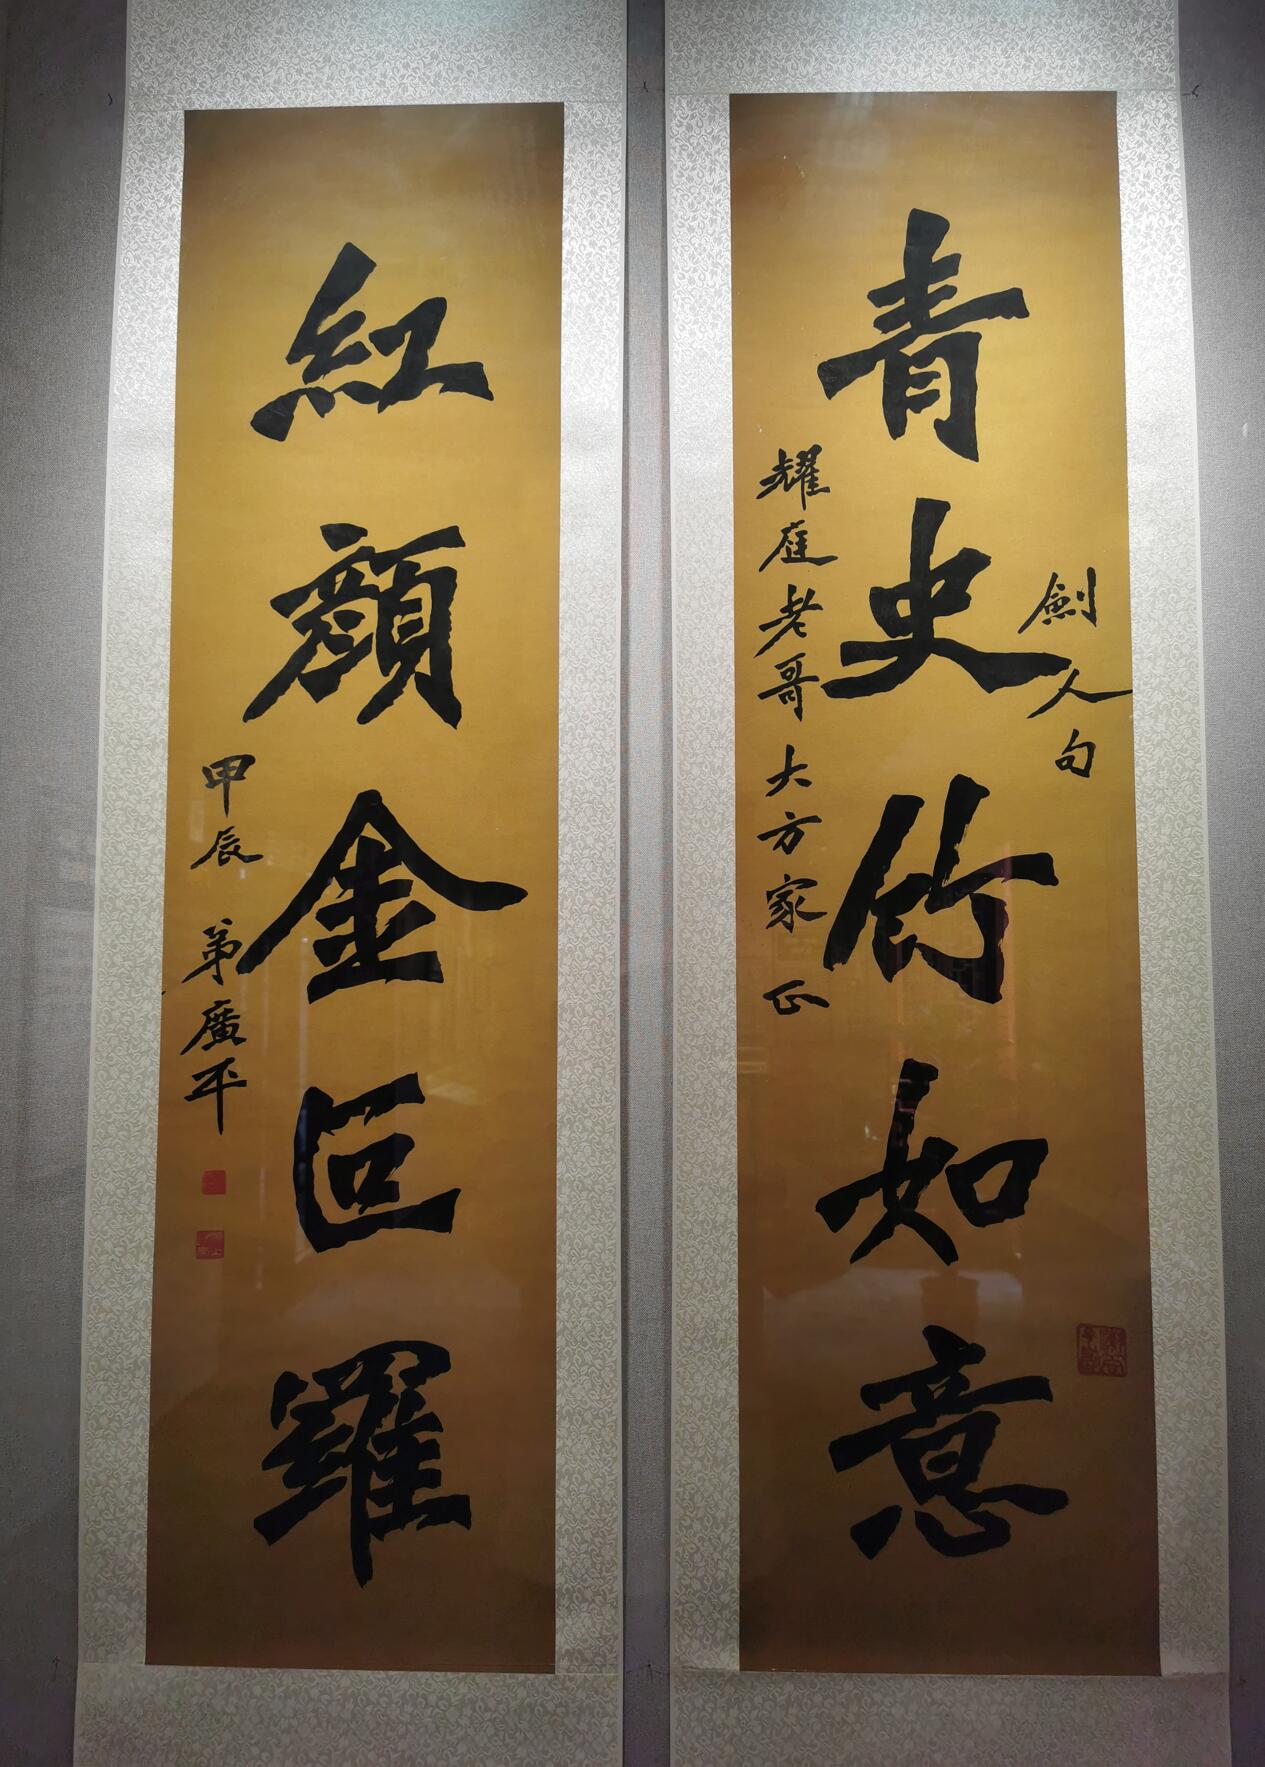 青史竹如意
劍人句
耀庭老哥大方家正
紅顔金叵羅
甲辰 弟廣平